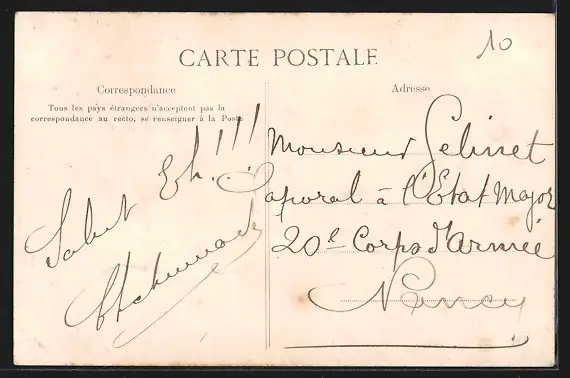 10
CARTE POSTALE
Correspondance
Tous les pays étrangers n'acceptent pas la
correspondance au recto, se renseigner à la Poste
Salut Eh. !!!
Adresse
Monsieur Gelinet
Caporal à l'Etat Major
20e Corps d'armée
Nancy